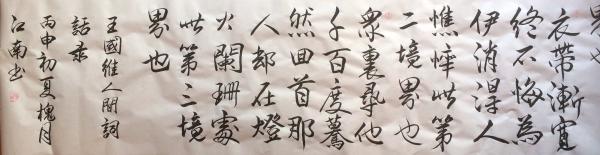 界也
衣帶漸寬
終不悔為
伊消得人
憔悴此第
二境界也
衆裏尋他
千百度驀
然回首那
人却在燈
火闌珊處
此第三境
界也
王國維人間詞
話录
丙申初夏槐月
江南书